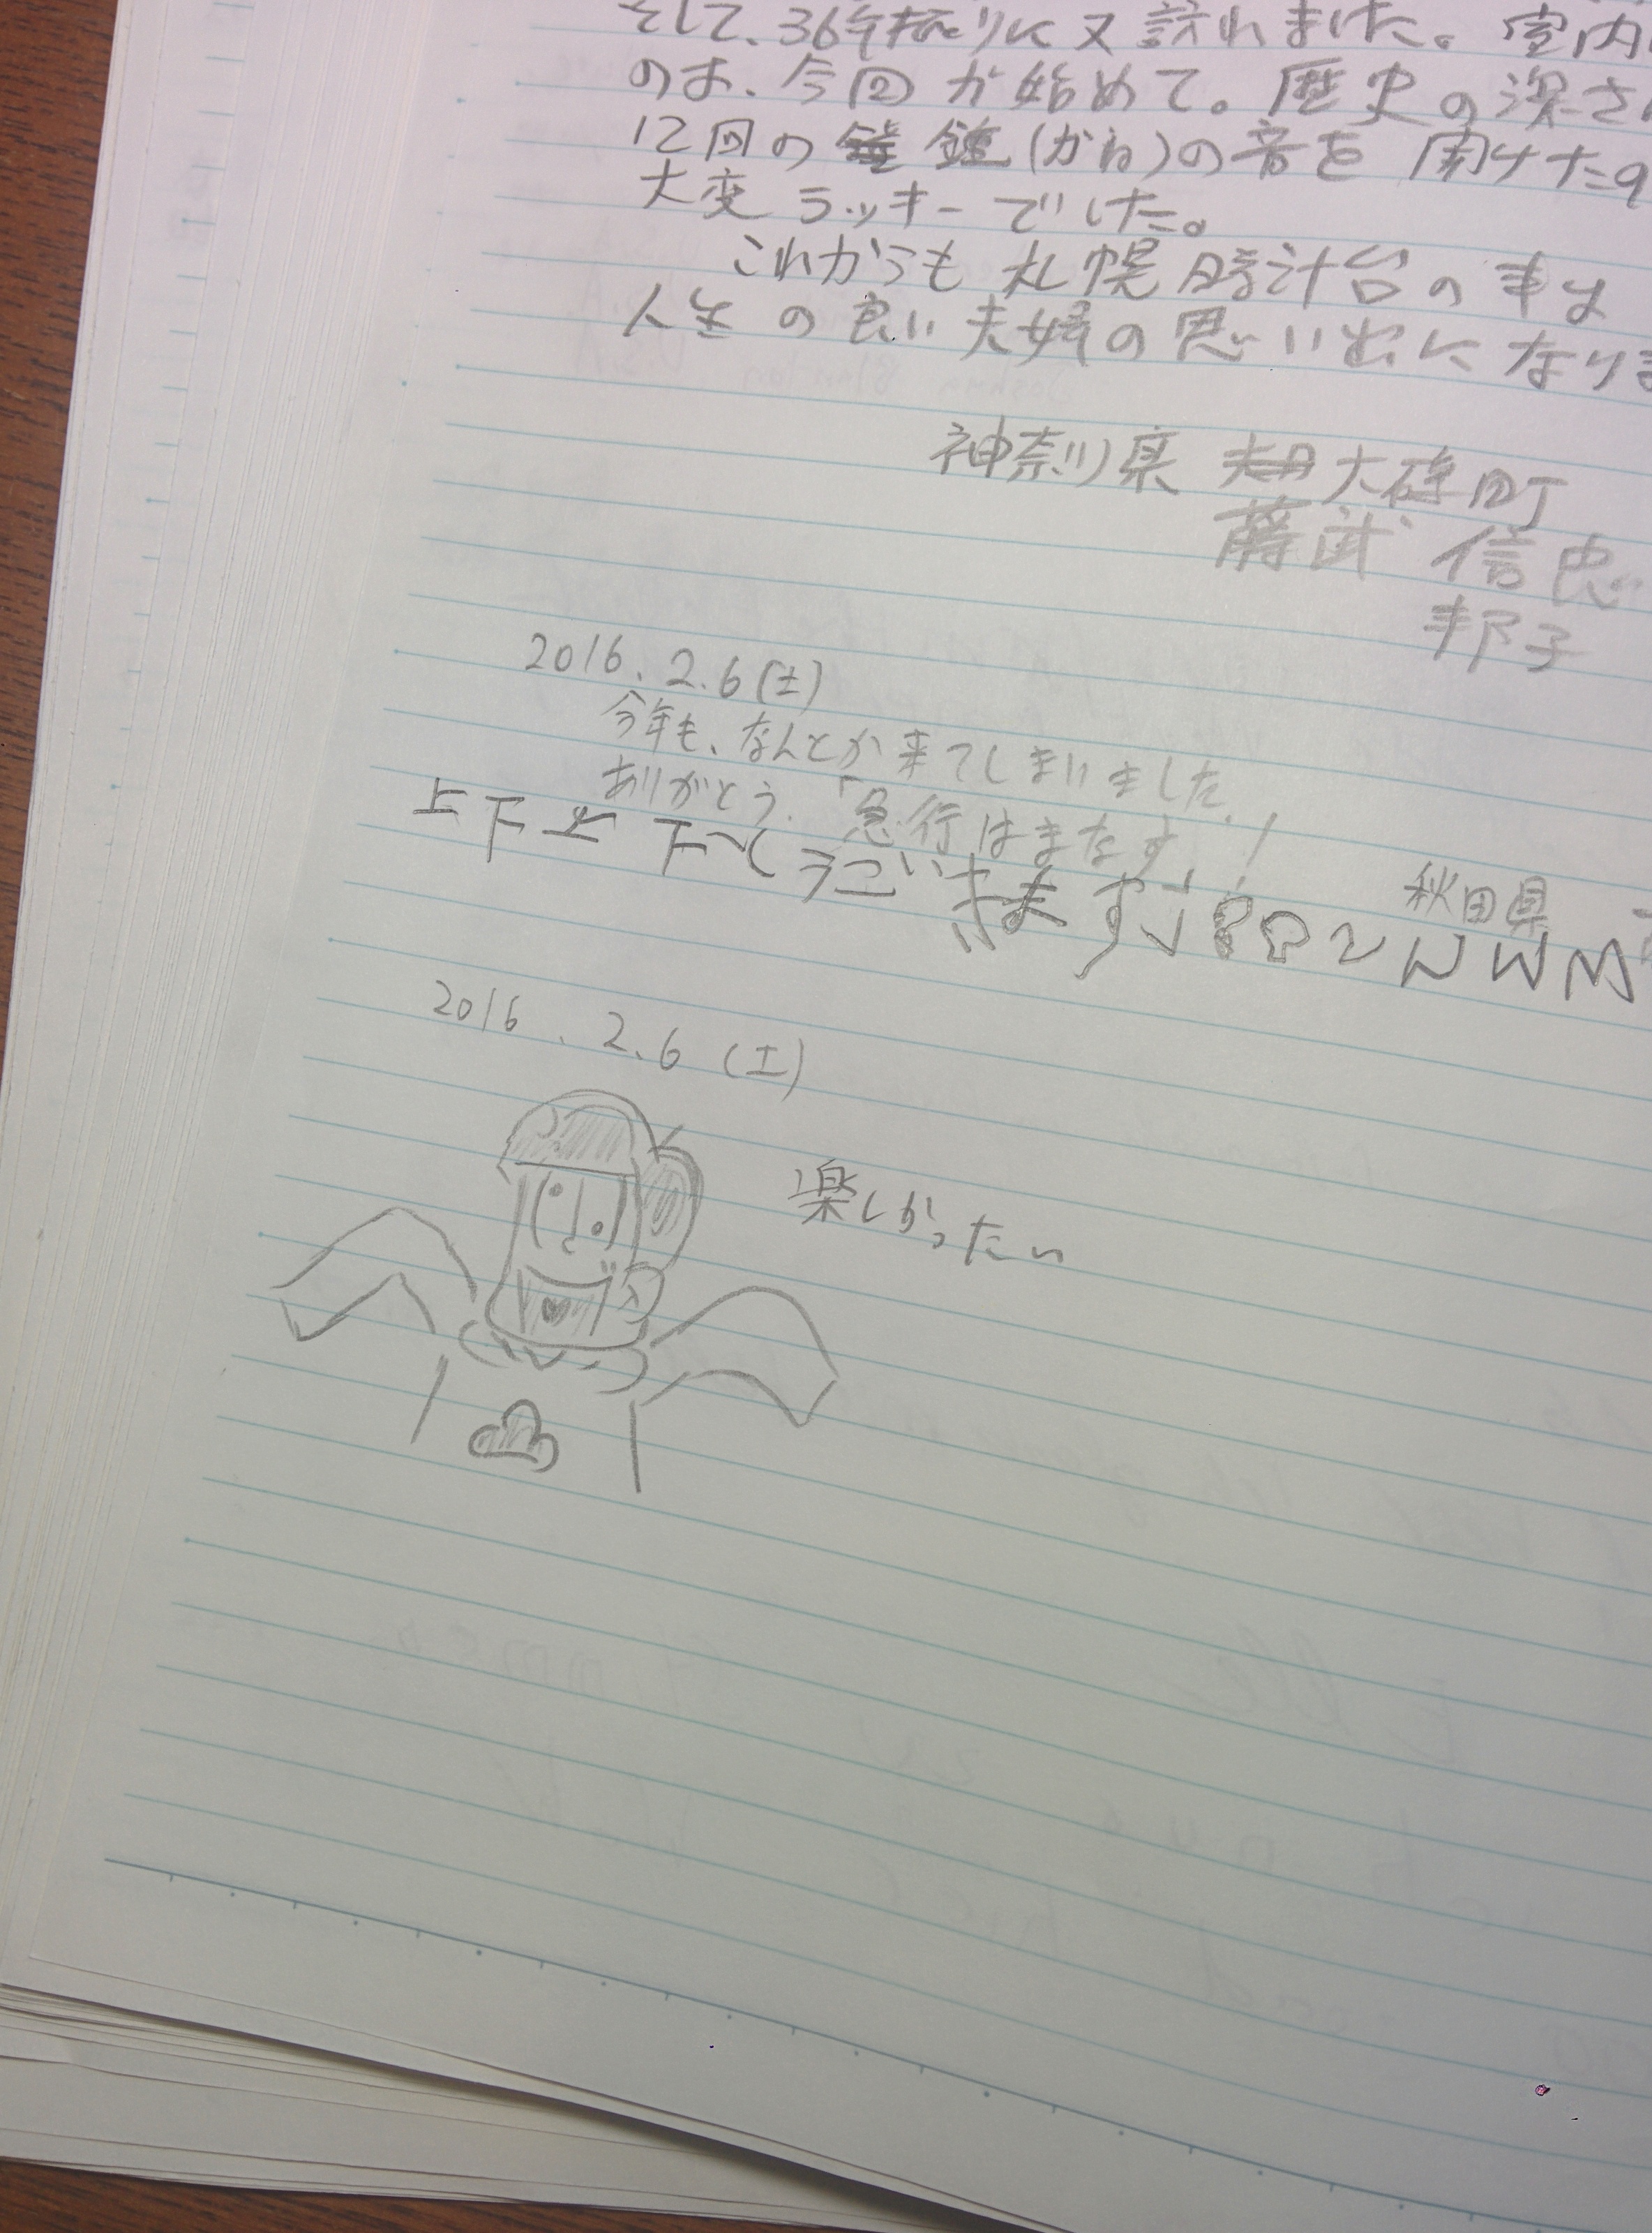 そして、36年振りに又訪れました。室内
のは、今回が始めて。歴史の深さ
12回の 鐘(かね)の音を聞けたの
大変ラッキーでした。
これからも札幌時計台の事は
人生の良い夫婦の思い出になりま
神奈川県 大磯町
信忠
邦子
2016.2.6(土)
今年も、なんとか来てしまいました。
ありがとう。「急行はまなす」!
秋田県
上下上下へ
きます
NWM
2016.2.6(土)
楽しかったい